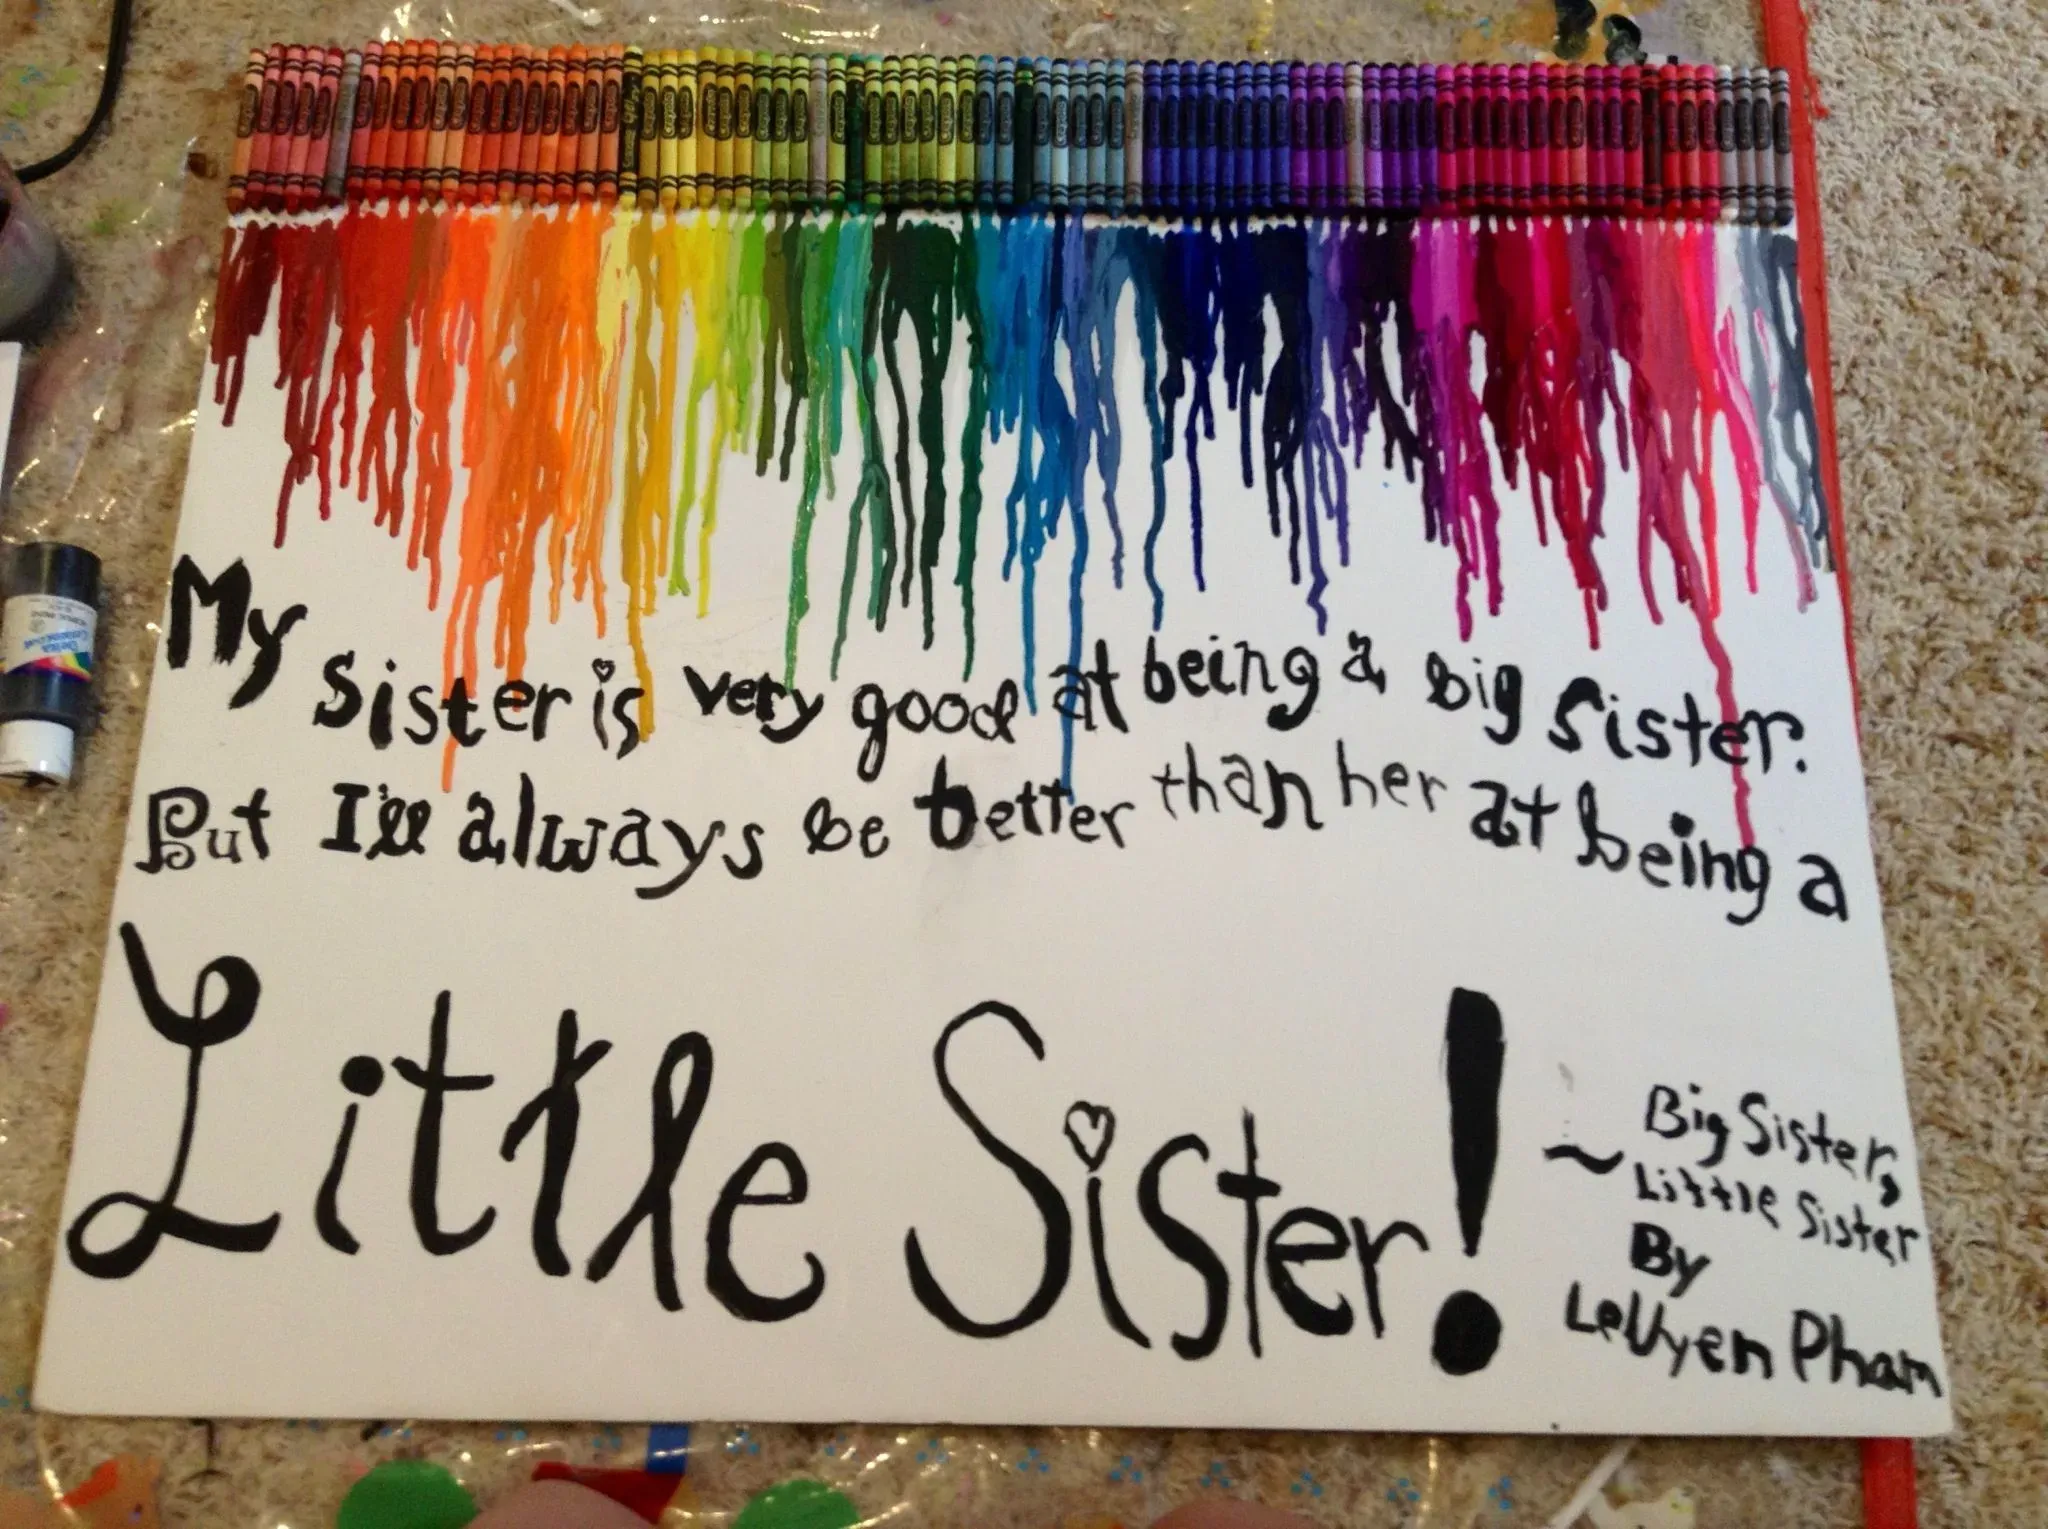 My sister is very good at being a big sister.
But I'll always be better than her at being a
Little Sister!
~ Big Sister,
Little Sister
By
LeUyen Pham